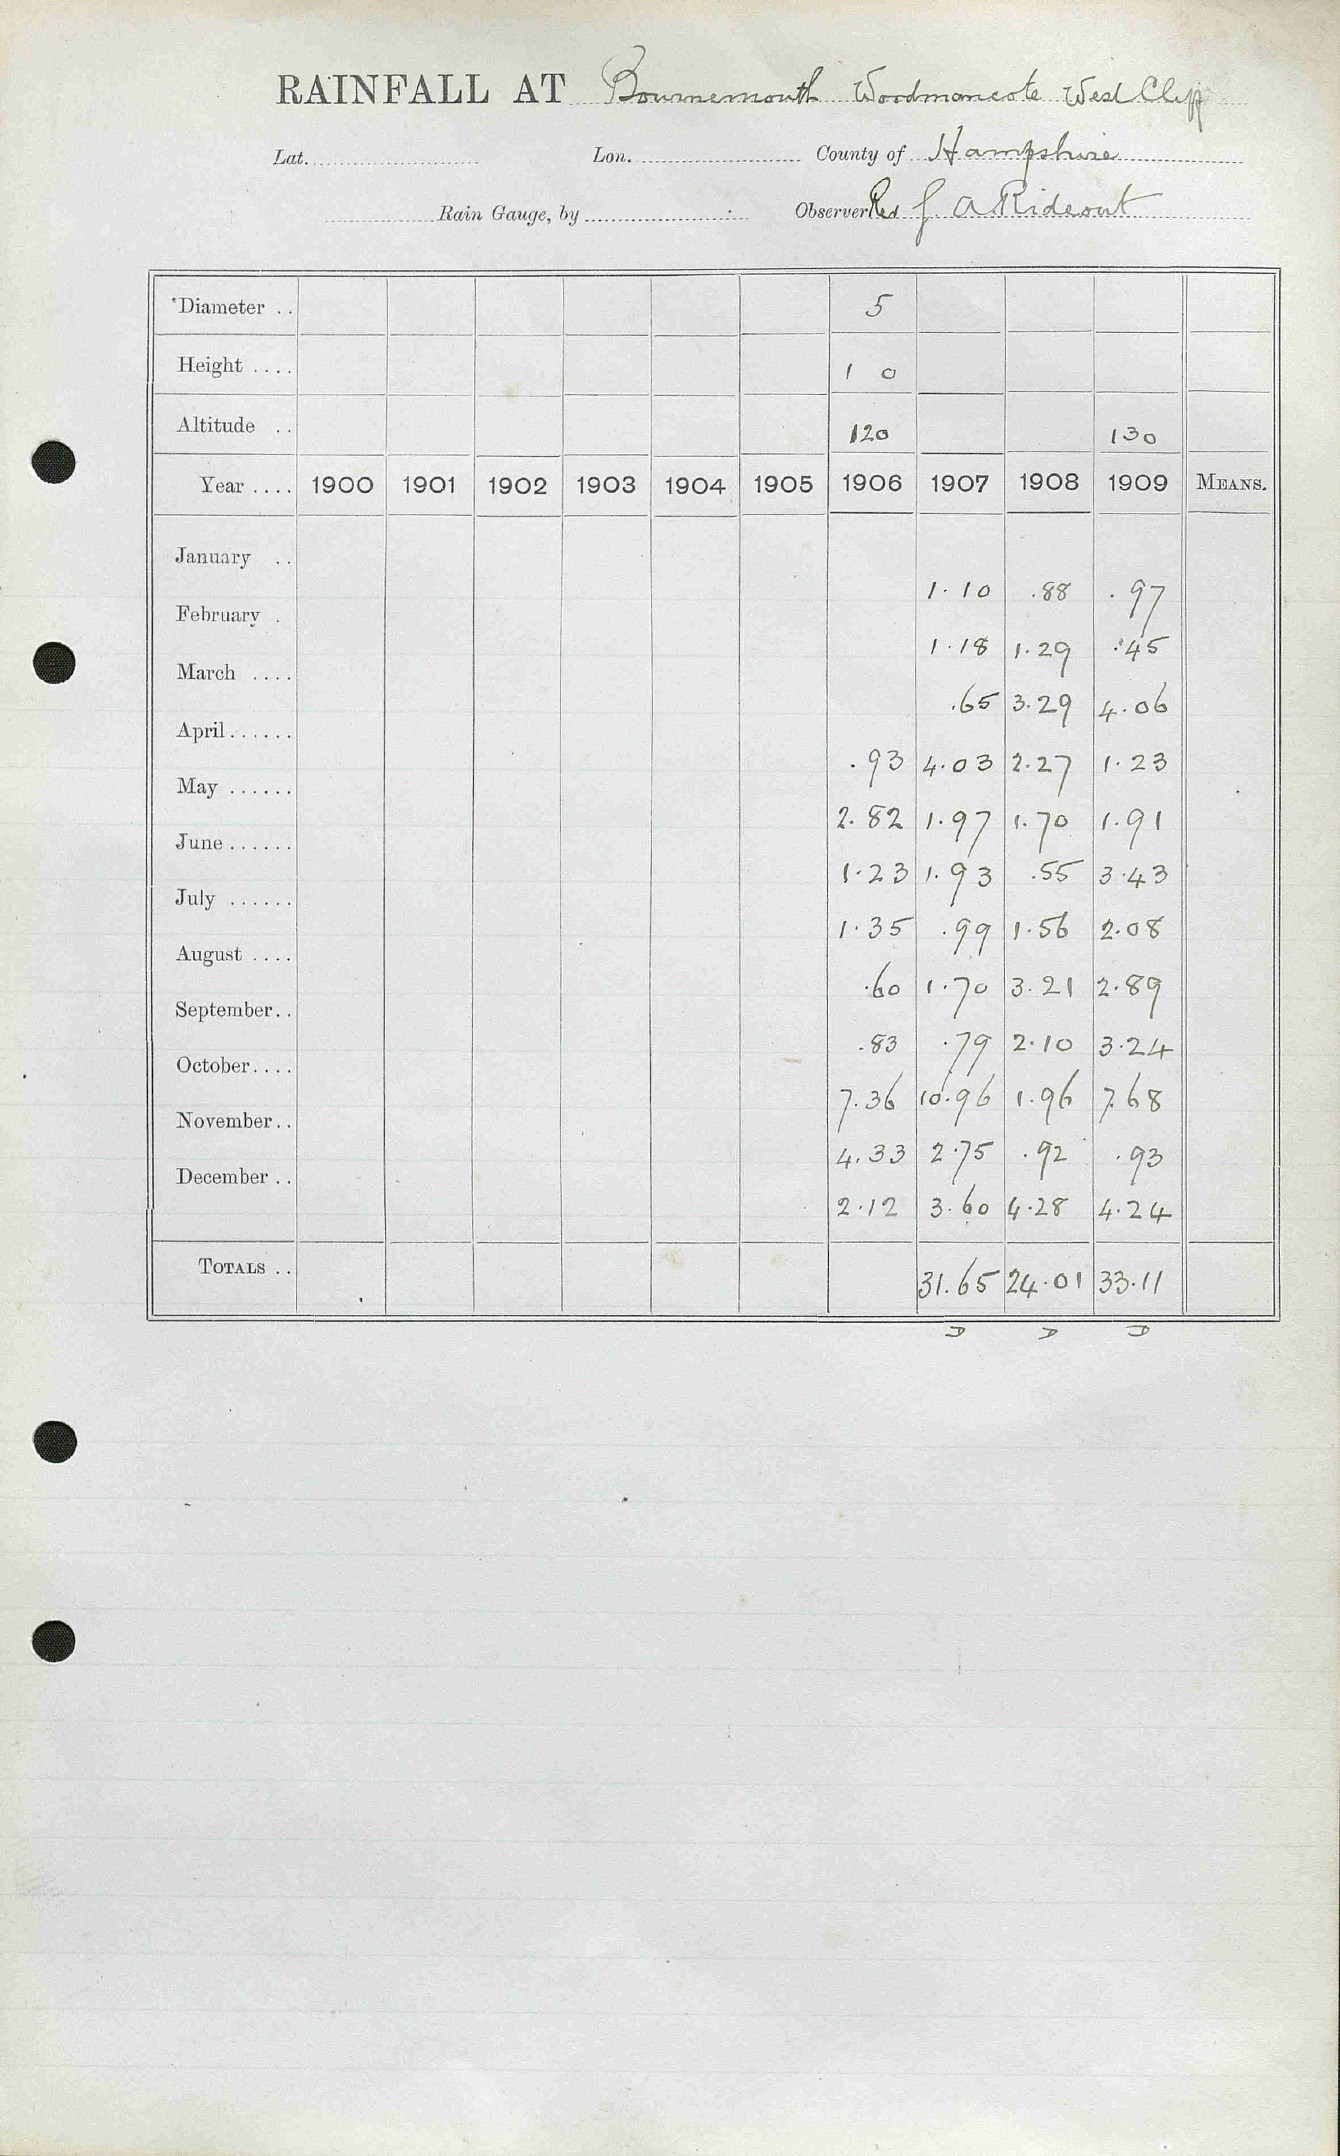 RAINFALL AT Bournemouth Woodmancote West Cliff
Lat. Lon. County of Hampshire
Rain Gauge, by Observer Rev J A Rideout
Diameter .. 5
Height .... 1 0
Altitude .. 120 130
Year .... 1900 1901 1902 1903 1904 1905 1906 1907 1908 1909 MEANS.
January .. 1.10 .88 .97
February . 1.18 1.29 .45
March .... .65 3.29 4.06
April...... .93 4.03 2.27 1.23
May ...... 2.82 1.97 1.70 1.91
June...... 1.23 1.93 .55 3.43
July ...... 1.35 .99 1.56 2.08
August .... .60 1.70 3.21 2.89
September.. .83 .79 2.10 3.24
October.... 7.36 10.96 1.96 7.68
November.. 4.33 2.75 .92 .93
December .. 2.12 3.60 4.28 4.24
TOTALS .. 31.65 24.01 33.11
D D D